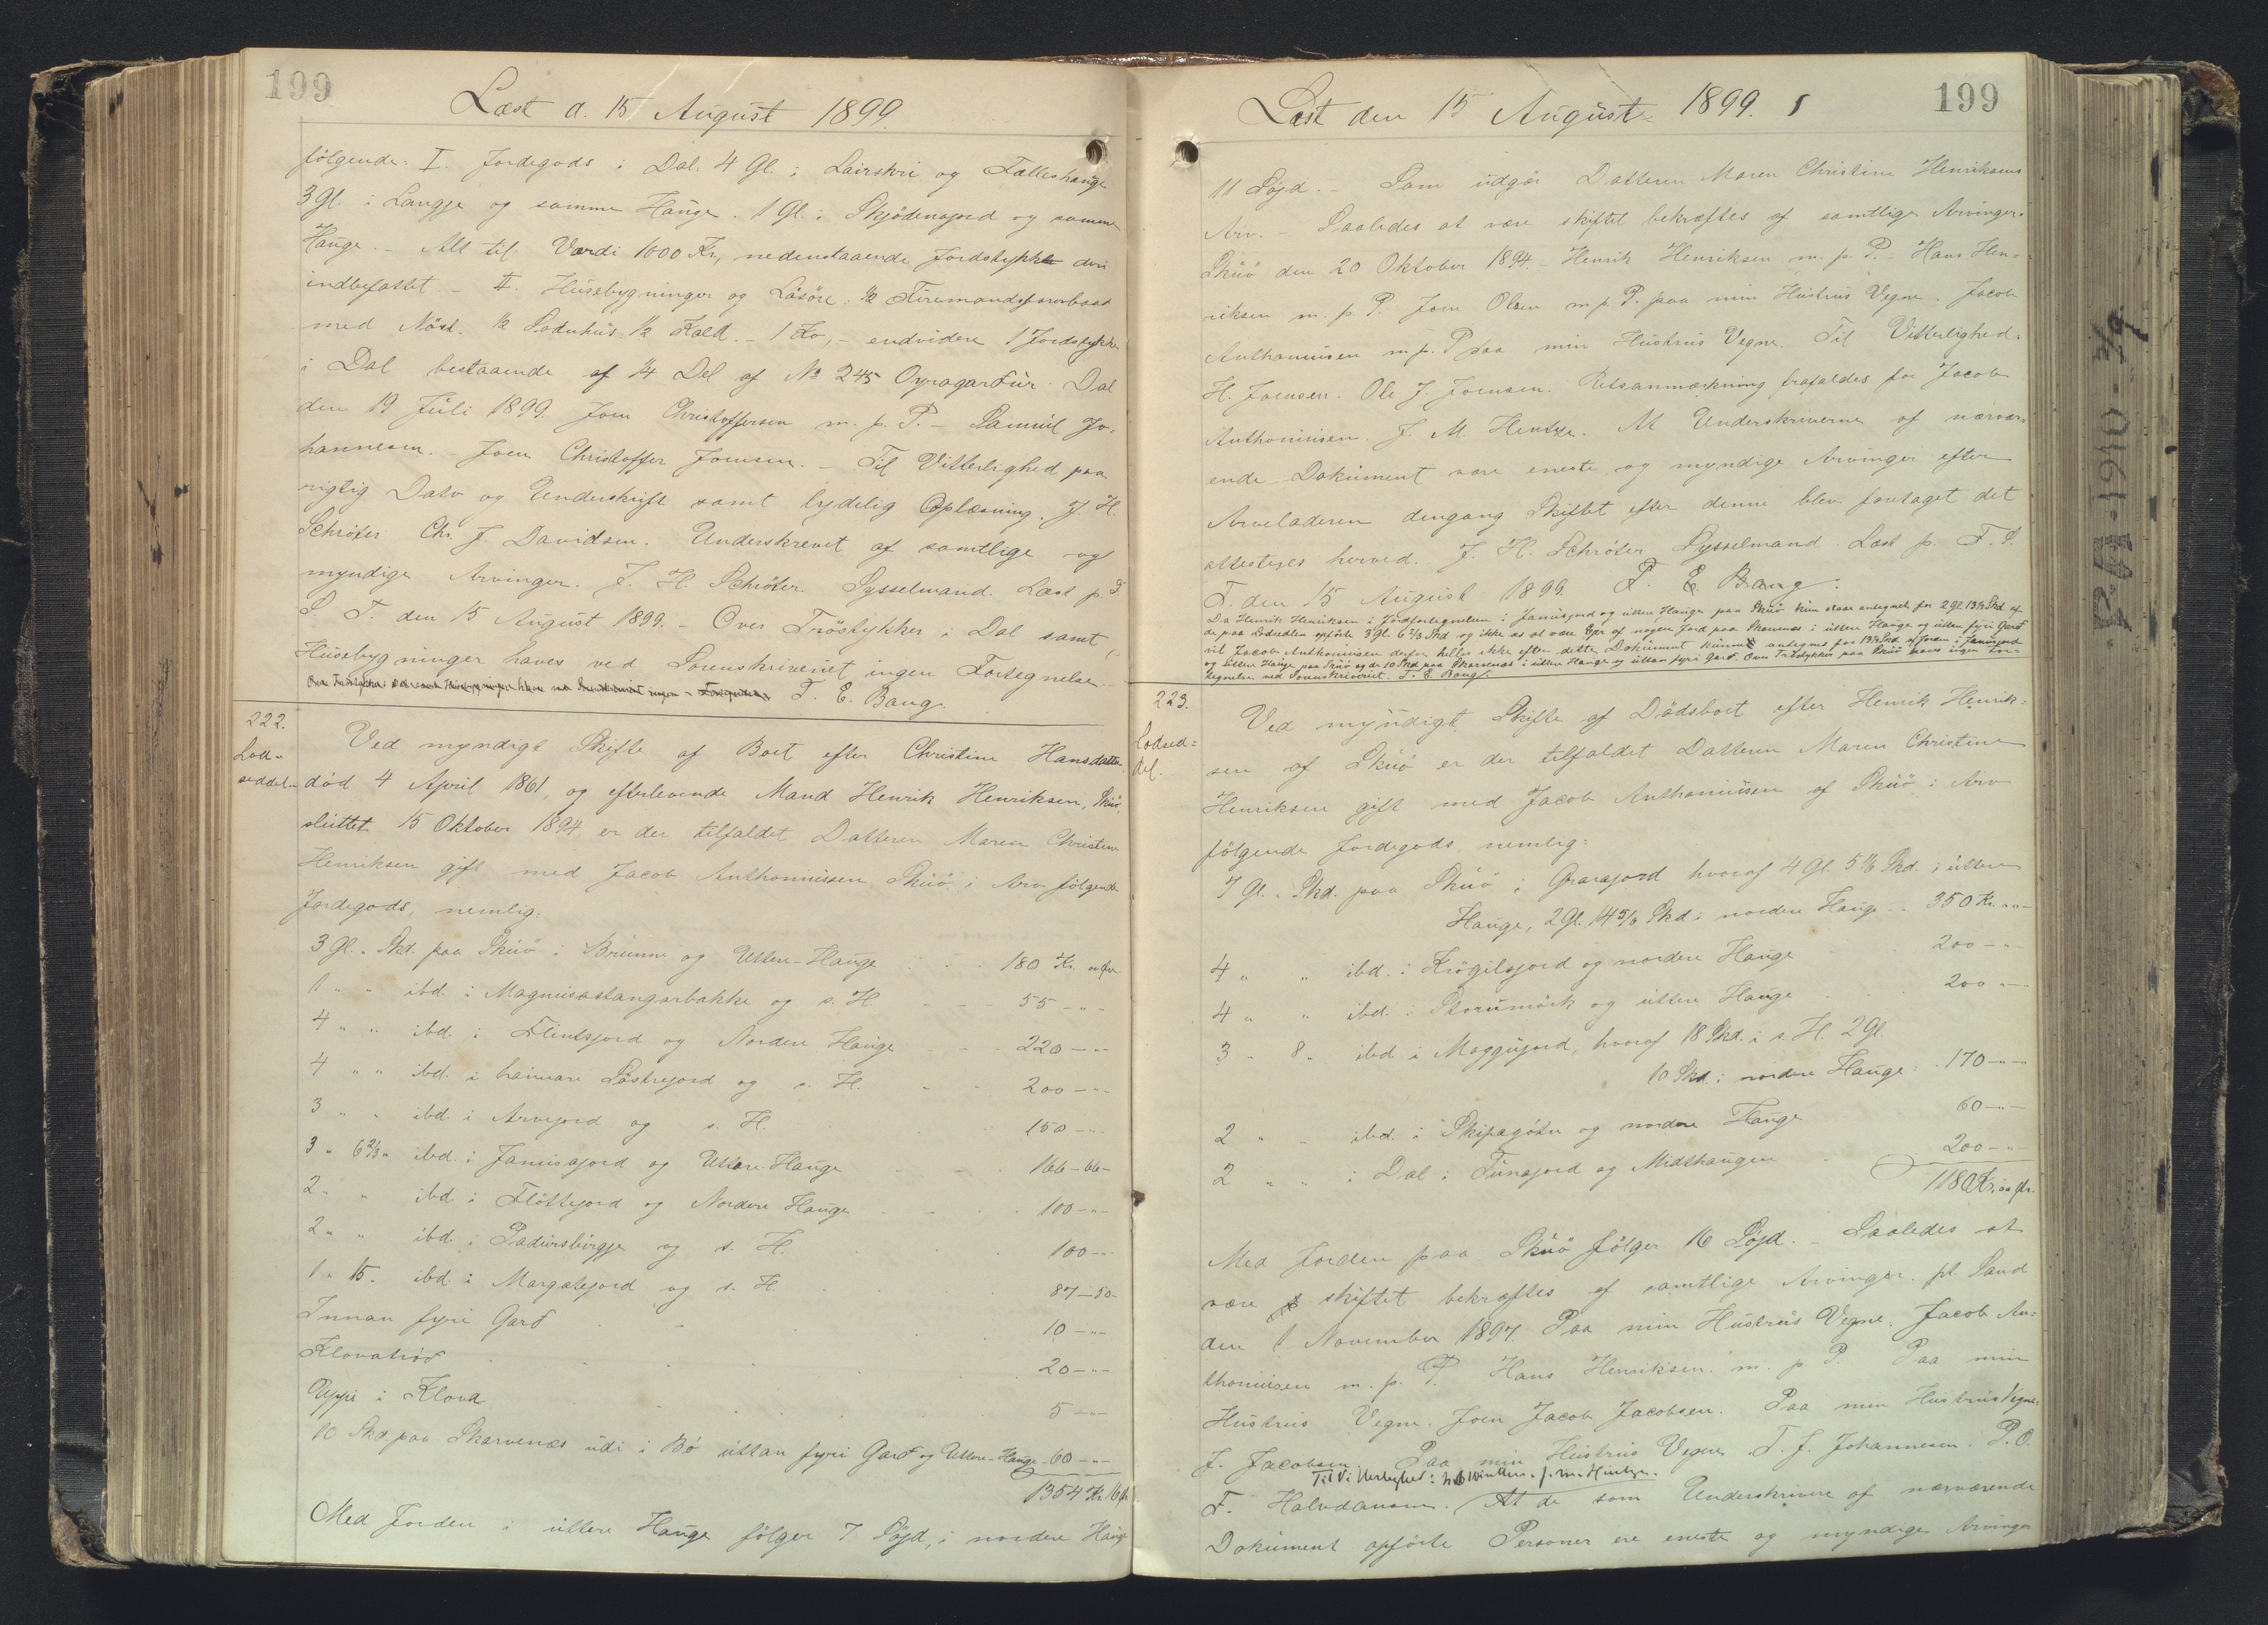 199
Læst d. 15 August 1899.
følgende: I. Jordegods i Dal. 4 Gl. i Lairskri og Fælleshauge
3 Gl. i Langgje og samme Hauge. 1 Gl. i Skjödenajord og samme
Hauge. – Alt til Værdi 1000 Kr, nedenstaaende Jordstykke deri
indbefattet – II. Husebygninger og Läsöre: ½ Firemandsfarerbaad
med Nöst. ½ Soduhus ½ Kald. – 1 Ko, – endvidere 1 Jordstykke
i Dal bestaaende af ¼ Del af No 245 Oyragarður. Dal
den 19 Juli 1899. Joen Christoffersen m. p. P. – Samuel Jo-
hannesen. – Joen Christoffer Joensen. – Til Vitterlighed paa
rigtig Dato og Underskrift samt lydelig Oplæsning. J. H.
Schröter Chr. J. Davidsen. Underskrevet af samtlige og
myndige Arvinger. J. H. Schröter Sysselmand. Læst p. S.
S. T. den 15 August 1899. – Over Tröstykker i Dal samt
Husebygninger haves ved Sorenskriveriet ingen Fortegnelse.
T. E. Bang.
222.
Lod-
seddel.
Ved myndigt Skifte af Boet efter Christine Hansdatter
död 4 April 1861, og efterlevende Mand Henrik Henriksen, Skuö,
sluttet 15 Oktober 1894 er der tilfaldet Datteren Maren Christine
Henriksen gift med Jacob Anthoniussen Skuö i Arv følgende
Jordegods, nemlig:
3 Gl. " Skd. paa Skuö i Brunne og Uttere-Hauge 180 Kr. " Ør
1 " " ibd. i Magnusastangarbakke og s. H 55 – " –
4 " " ibd. i Flintsjord og Nordere Hauge 220 – " –
4 " " ibd. i haimare Löstrejord og s. H. 200 – " –
3 " " ibd. i Arvejord og s. H. 150 – " –
3 " 6⅔ " ibd. i Janusajord og Uttere Hauge 166 – 66 –
2 " " ibd. i Flöttejord og Nordere Hauge 100 – " –
2 " " ibd. i Sadursburgje og s. H. 100 – " –
1 " 15 " ibd. i Margatejord og s. H. 87 – 50 –
Innan fyri Garð 10 – " –
Klovatröð 20 – " –
Uppi i Klova 5 – " –
10 Skd. paa Skarvenæs udi i Bö uttan fyri Garð og Uttere-Hauge 60 – " –
1354 Kr. 16 Ør
Med Jorden i uttere Hauge følger 7 Söjd, i nordere Hauge
Læst den 15 August 1899.
199
11 Söjd. – Som udgör Datteren Maren Christine Henriksens
Arv. – Saaledes at være skiftet bekræftes af samtlige Arvinger.
Skuö den 20 Oktober 1894. – Henrik Henriksen m. p. P. – Hans Hen-
riksen m. p. P. Joen Olsen m p. P. paa min Hustrus Vegne. Jacob
Anthoniusen m p. P. paa min Hustrus Vegne. Til Vitterlighed:
H. Joensen. Ole J. Joensen. Retsanmærkning frafaldes for Jacob
Anthoniusen. J. M. Hentze. At Underskriverne af nærvær-
ende Dokument vare eneste og myndige Arvinger efter
Arveladeren dengang Skiftet efter denne blev foretaget det
attesteres herved. J. H. Schröter Sysselmand. Læst p. F. S.
T. den 15 August 1899. T. E. Bang.
Da Henrik Henriksen i Jordfortegnelsen i Janusjord og uttere Hauge paa Skuö kun staar antegnet for 2 Gl. 13⅓ Skd af
de paa Lodsedlen opförte 3 Gl. 6⅔ Skd og ikke as at være Ejer af nogen Jord paa Skarvenæs i uttere Hauge og uttan fyri Garð
vil Jacob Anthoniusen derfor heller ikke efter dette Dokument kunne antegnes for 13⅓ Skd af Jorden i Janusjord
og Uttere Hauge paa Skuö og de 10 Skd paa Skarvenæs i uttere Hauge og uttan fyri Garð. Over Tröstykker paa Skuö haves ingen For-
tegnelse ved Sorenskriveriet. T. E. Bang.
223.
Lodsed=
del.
Ved myndigt Skifte af Dödsboet efter Henrik Henrik-
sen af Skuö er der tilfaldet Datteren Maren Christine
Henriksen gift med Jacob Anthoniusen af Skuö i Arv
følgende Jordegods, nemlig:
7 Gl. " Skd. paa Skuö i Gravajord hvoraf 4 Gl. 5 1/6 Skd. i uttere
Hauge, 2 Gl. 14 5/6 Skd i nordere Hauge 350 Kr. " –
4 " " ibd. i Krögilsjord og nordere Hauge 200 – " –
4 " " ibd. i Storumörk og uttere Hauge 200 – " –
3 " 8 " ibd i Moggujord, hvoraf 18 Skd. i s. H. 2 Gl.
10 Skd i nordere Hauge 170 – " –
2 " " ibd. i Skipagötu og nordere Hauge 60 – " –
2 " " i Dal i Tunajord og Midthaugen 200 – " –
1180 Kr. " Ør.
Med Jorden paa Skuö følger 16 Söjd. – Saaledes at
være skiftet bekræftes af samtlige Arvinger. pt. Sand
den 1 November 1897. Paa min Hustrus Vegne. Jacob An-
thoniusen m. p. P. Hans Henriksen. m. p P. Paa min
Hustrus Vegne. Joen Jacob Jacobsen. Paa min Hustrus Vegne.
J. Jacobsen. Paa min Hustrus Vegne T. J. Johannesen. P. O.
Til Vitterlighed: Winther. J. M. Hentze.
F. Halvdansen. At de som Underskrivere af nærværende
Dokument opförte Personer ere eneste og myndige Arvinger